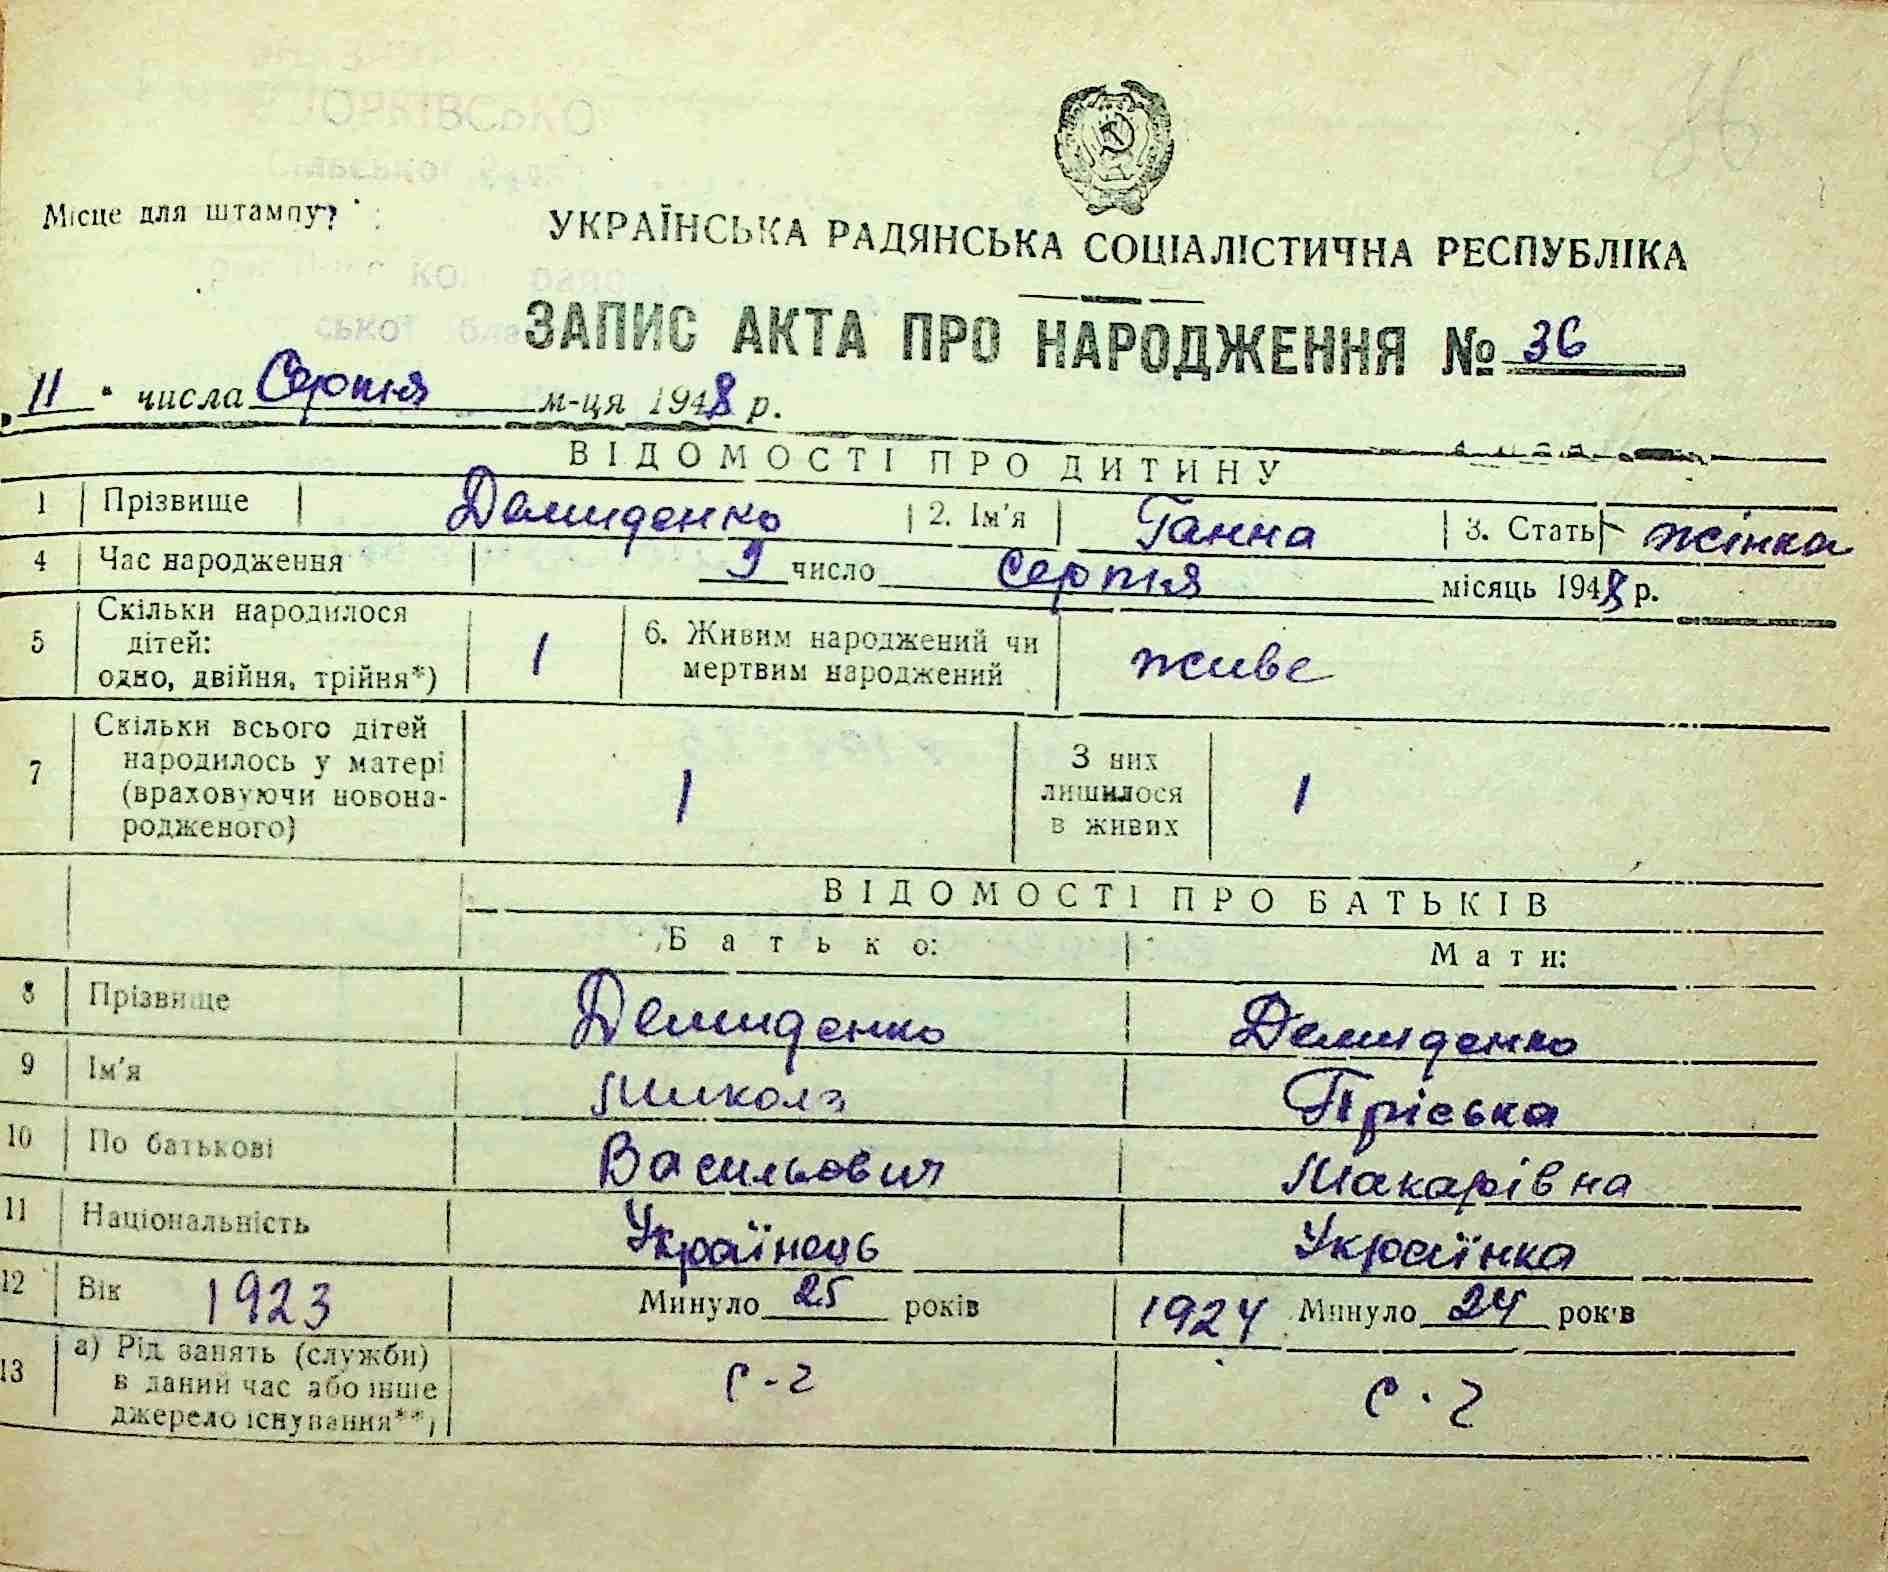 36
Місце для штампу
УКРАЇНСЬКА РАДЯНСЬКА СОЦІАЛІСТИЧНА РЕСПУБЛІКА
ЗАПИС АКТА ПРО НАРОДЖЕННЯ № 36
„ 11 “ числа Серпня м-ця 1948 р.
ВІДОМОСТІ ПРО ДИТИНУ
1 Прізвище Демиденко 2. Ім'я Ганна 3. Стать жінка
4 Час народження 9 число серпня місяць 1948 р.
5 Скільки народилося дітей: одно, двійня, трійня*) 1 6. Живим народжений чи мертвим народжений живе
7 Скільки всього дітей народилось у матері (враховуючи новона-родженого) 1 З них лишилося в живих 1
ВІДОМОСТІ ПРО БАТЬКІВ
Батько: Мати:
8 Прізвище Демиденко Демиденко
9 Ім'я Микола Пріська
10 По батькові Васильович Макарівна
11 Національність Українець Українка
12 Вік 1923 Минуло 25 років 1924 Минуло 24 років
13 а) Рід занять (служби) в даний час або інше джерело існування**) с-г с.г